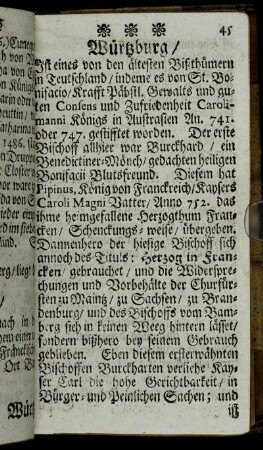 45
Würtzburg /
Ist eines von den ältesten Bißthümern
in Teutschland / indeme es von St. Bo-
nifacio / Krafft Päbstl. Gewalts und gu-
ten Consens und Zufriedenheit Caroli-
manni Königs in Austrasien An. 741.
oder 747. gestifftet worden. Der erste
Bischoff allhier war Burckhard / ein
Benedictiner-Mönch / gedachten heiligen
Bonifacii Blutsfreund. Diesem hat
Pipinus, König von Franckreich / Kaysers
Caroli Magni Vatter / Anno 752. das
ihme heimgefallene Herzogthum Fran-
cken / Schenckungs-weise / übergeben.
Dannenhero der hiesige Bischoff sich
annoch des Tituls: Herzog in Fran-
cken / gebrauchet / und die Widerspre-
chungen und Vorbehälte der Churfür-
sten zu Maintz / zu Sachsen / zu Bran-
denburg / und des Bischoffs vom Bam-
berg sich in keinen Weeg hintern lässet /
sondern bißhero bey seinem Gebrauch
geblieben. Eben diesem ersterwähnten
Bischoffen Burckharten verliehe Kay-
ser Carl die hohe Gerichtbarkeit / in
Bürger- und Peinlichen Sachen; und
ist